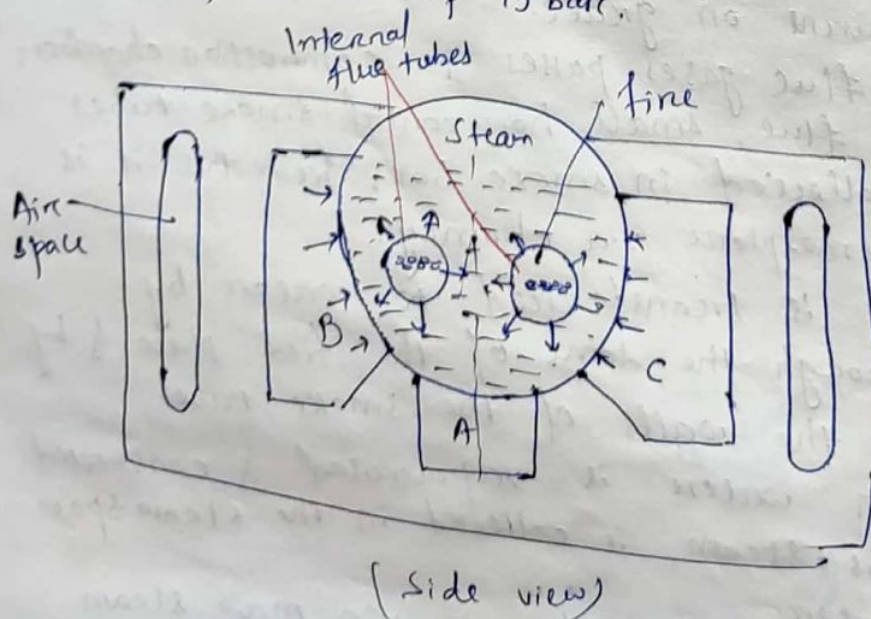 15 bar.
Internal
flue tubes
fire
Steam
Air
space
B
C
A
(Side view)